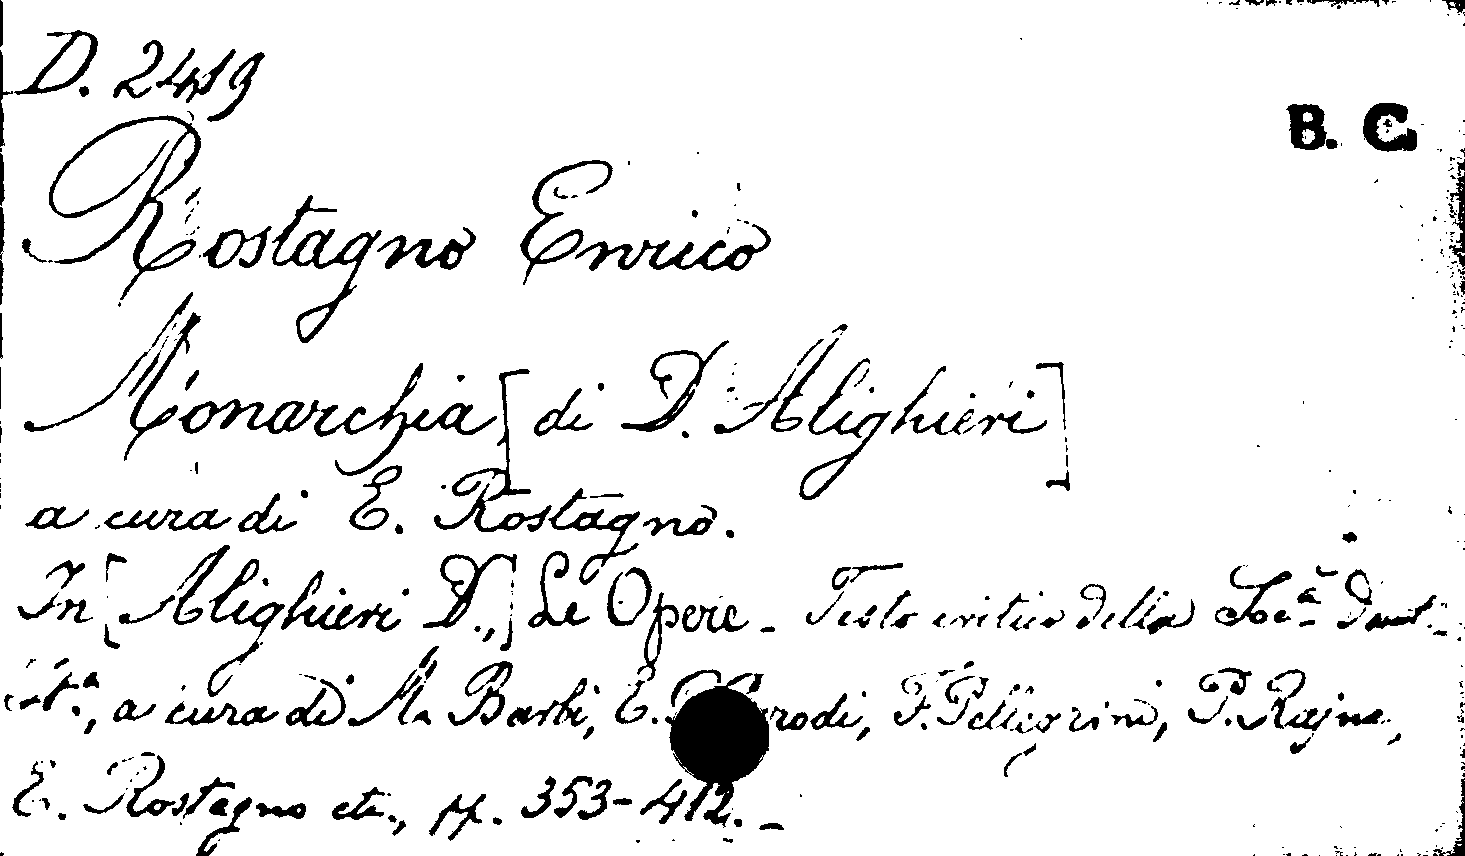 D. 2419
B. C.
Rostagno Enrico
Monarchia, [di D. Alighieri]
a cura di E. Rostagno.
In [Alighieri D.,] Le Opere - Testo critico della Soc.a Dant.
it.a, a cura di M. Barbi, E. G. Parodi, F. Pellegrini, P. Rajna,
E. Rostagno etc., pp. 353-412. -